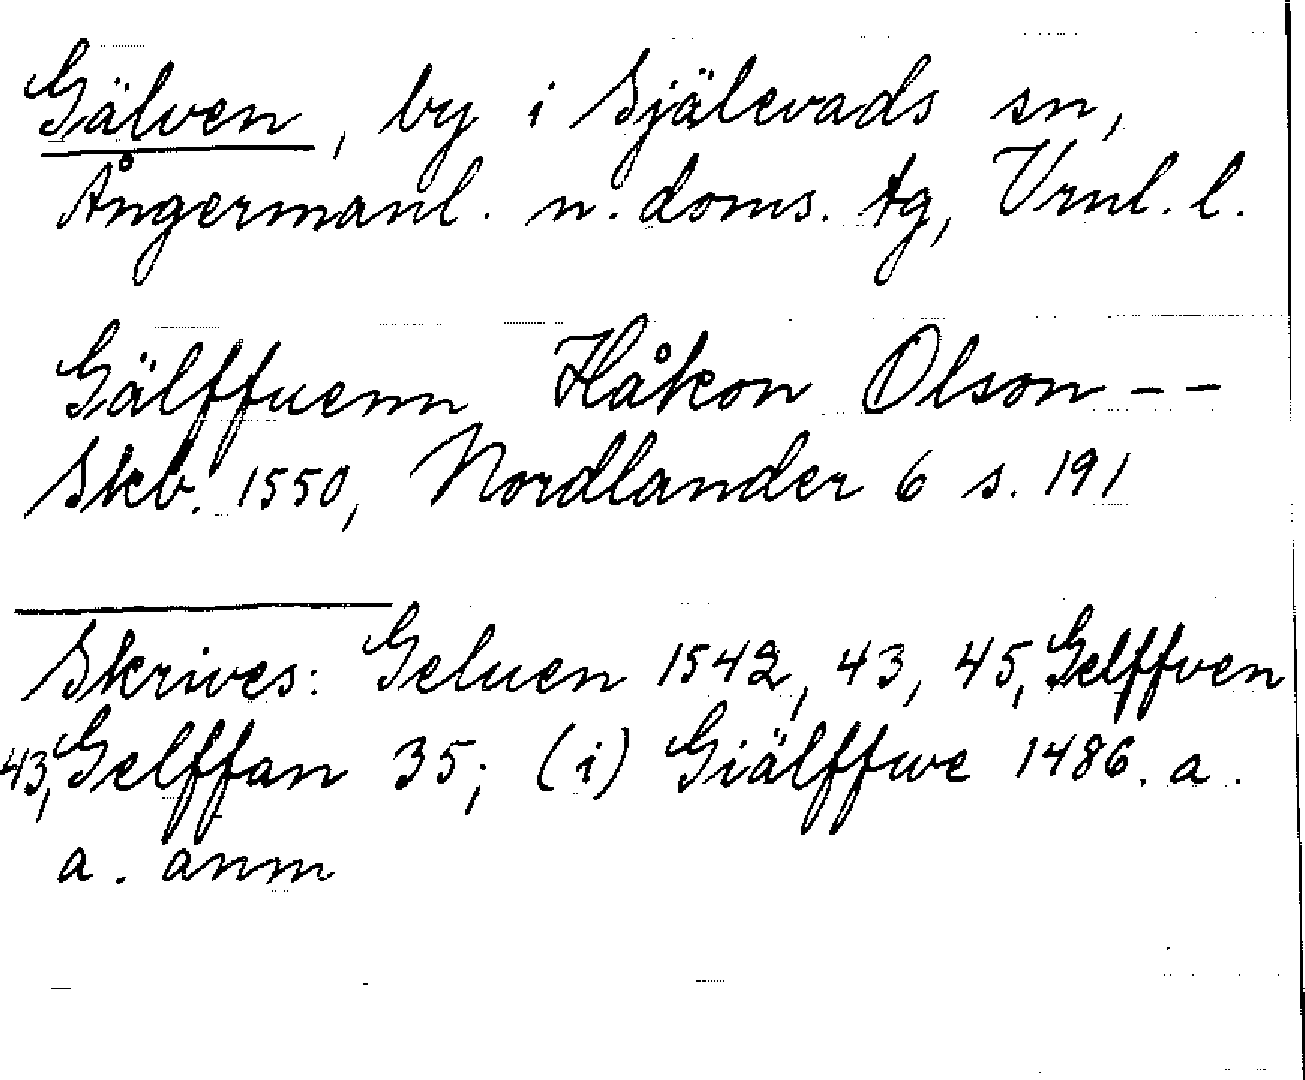 Gälven, by i Själevads sn,
Ångermanl. n. doms. tg, Vrnl. l.
Gälffuenn Håkon Olson - -
Skb. 1550, Nordlander 6 s. 191
Skrives: Geluen 1542, 43, 45, Gelffven
43, Gelffan 35; (i) Giälffwe 1486. a.
a. anm